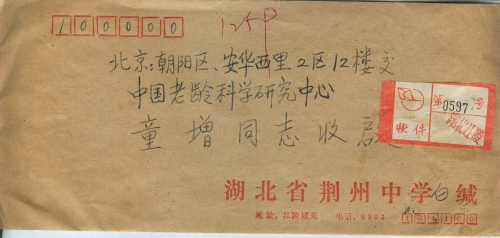 100000
北京:朝阳区、安华西里2区12楼交
中国老龄科学研究中心
童增同志收启
第0597号
收件
湖北江陵
湖北省荆州中学白缄
地址:江陵城关 电话:6803